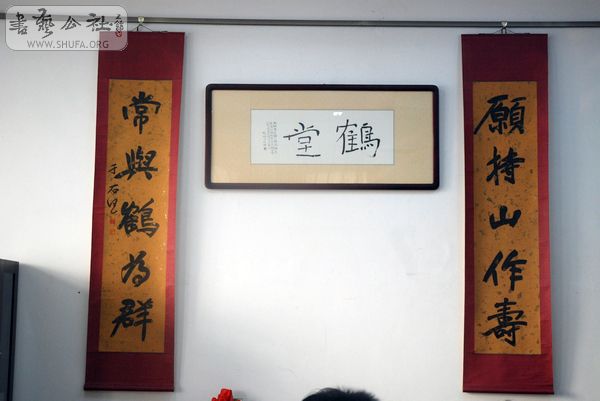 書藝公社
WWW.SHUFA.ORG
願持山作壽
鶴堂
常與鶴為群